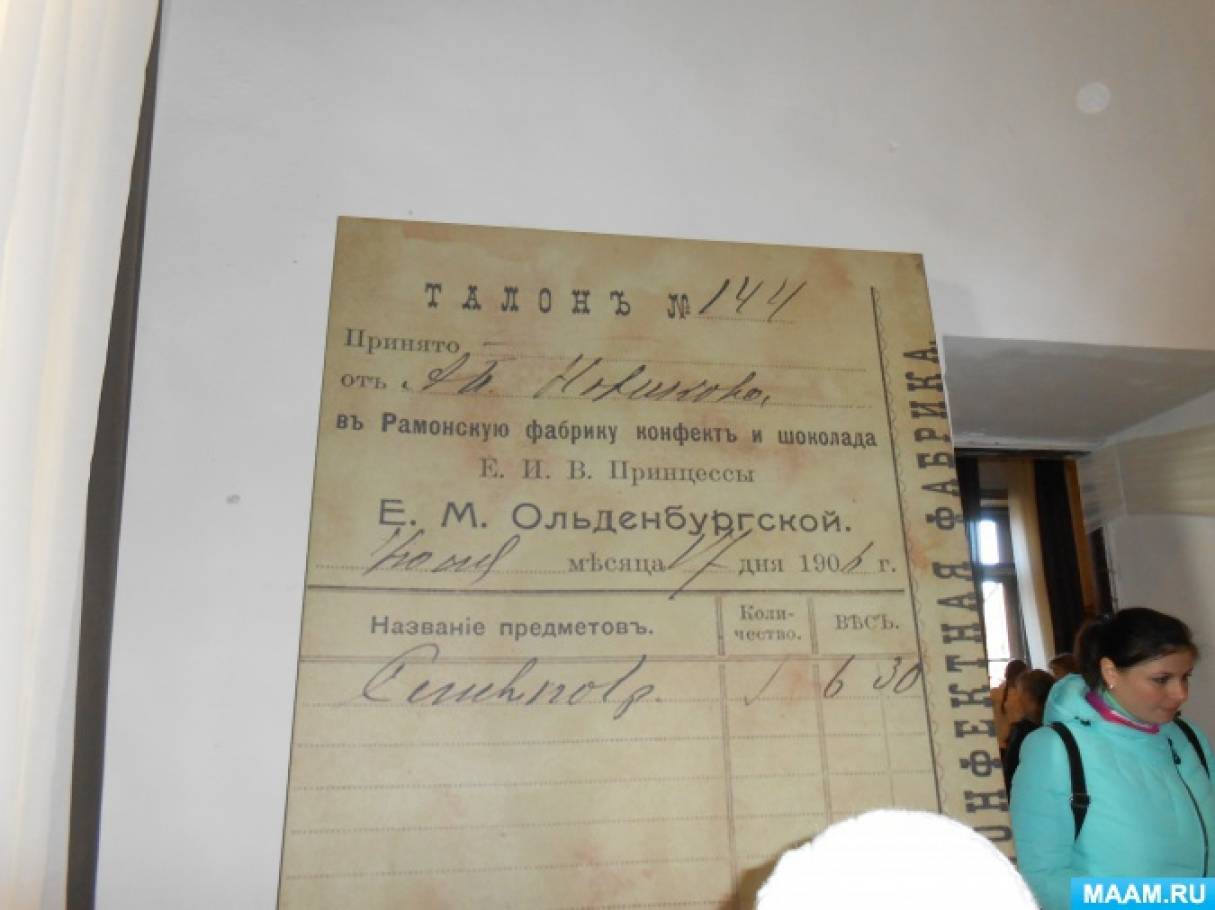 ТАЛОНЪ № 144
Принято
отъ Новикова
въ Рамонскую фабрику конфектъ и шоколада
Е. И. В. Принцессы
Е. М. Ольденбургской.
Июля мѣсяца 17 дня 190 г.
Названіе предметовъ. Коли-чество. ВѢСЪ.
6 30
ОНФЕКТНАЯ ФАБРИКА.
MAAM.RU